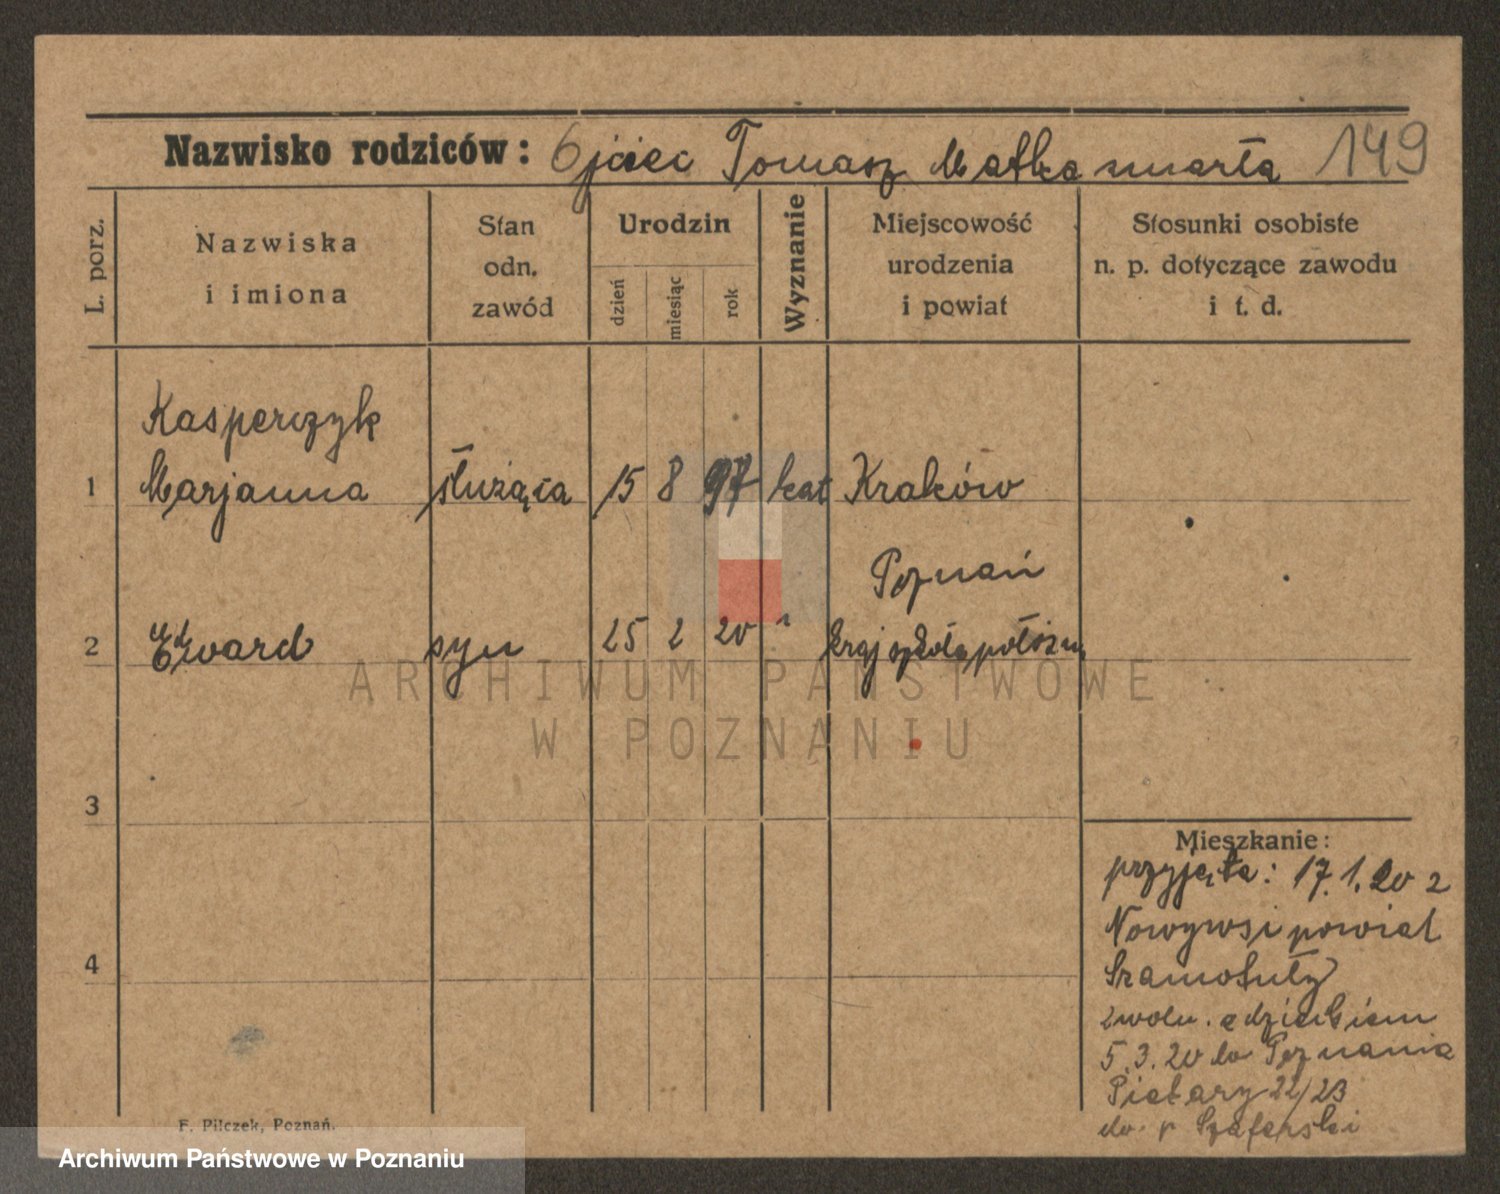 Nazwisko rodziców: Ojciec Tomasz Matka umarła 149
L. porz.
Nazwiska
i imiona
Stan
odn.
zawód
Urodzin
dzień
miesiąc
rok
Wyznanie
Miejscowość
urodzenia
i powiat
Stosunki osobiste
n. p. dotyczące zawodu
i t. d.
Kasperczyk
1 Marjanna służąca 15 8 97 kat Kraków
Poznań
2 Edward syn 25 2 20 " kraj szkoła położn
ARCHIWUM PAŃSTWOWE
W POZNANIU
3
Mieszkanie:
przyjęta: 17.1.20 z
Nowejwsi powiat
4 Szamotuły
zwoln. z dzieckiem
5.3.20 do Poznania
Piekary 22/23
do p Szaferski
F. Pilczek, Poznań.
Archiwum Państwowe w Poznaniu